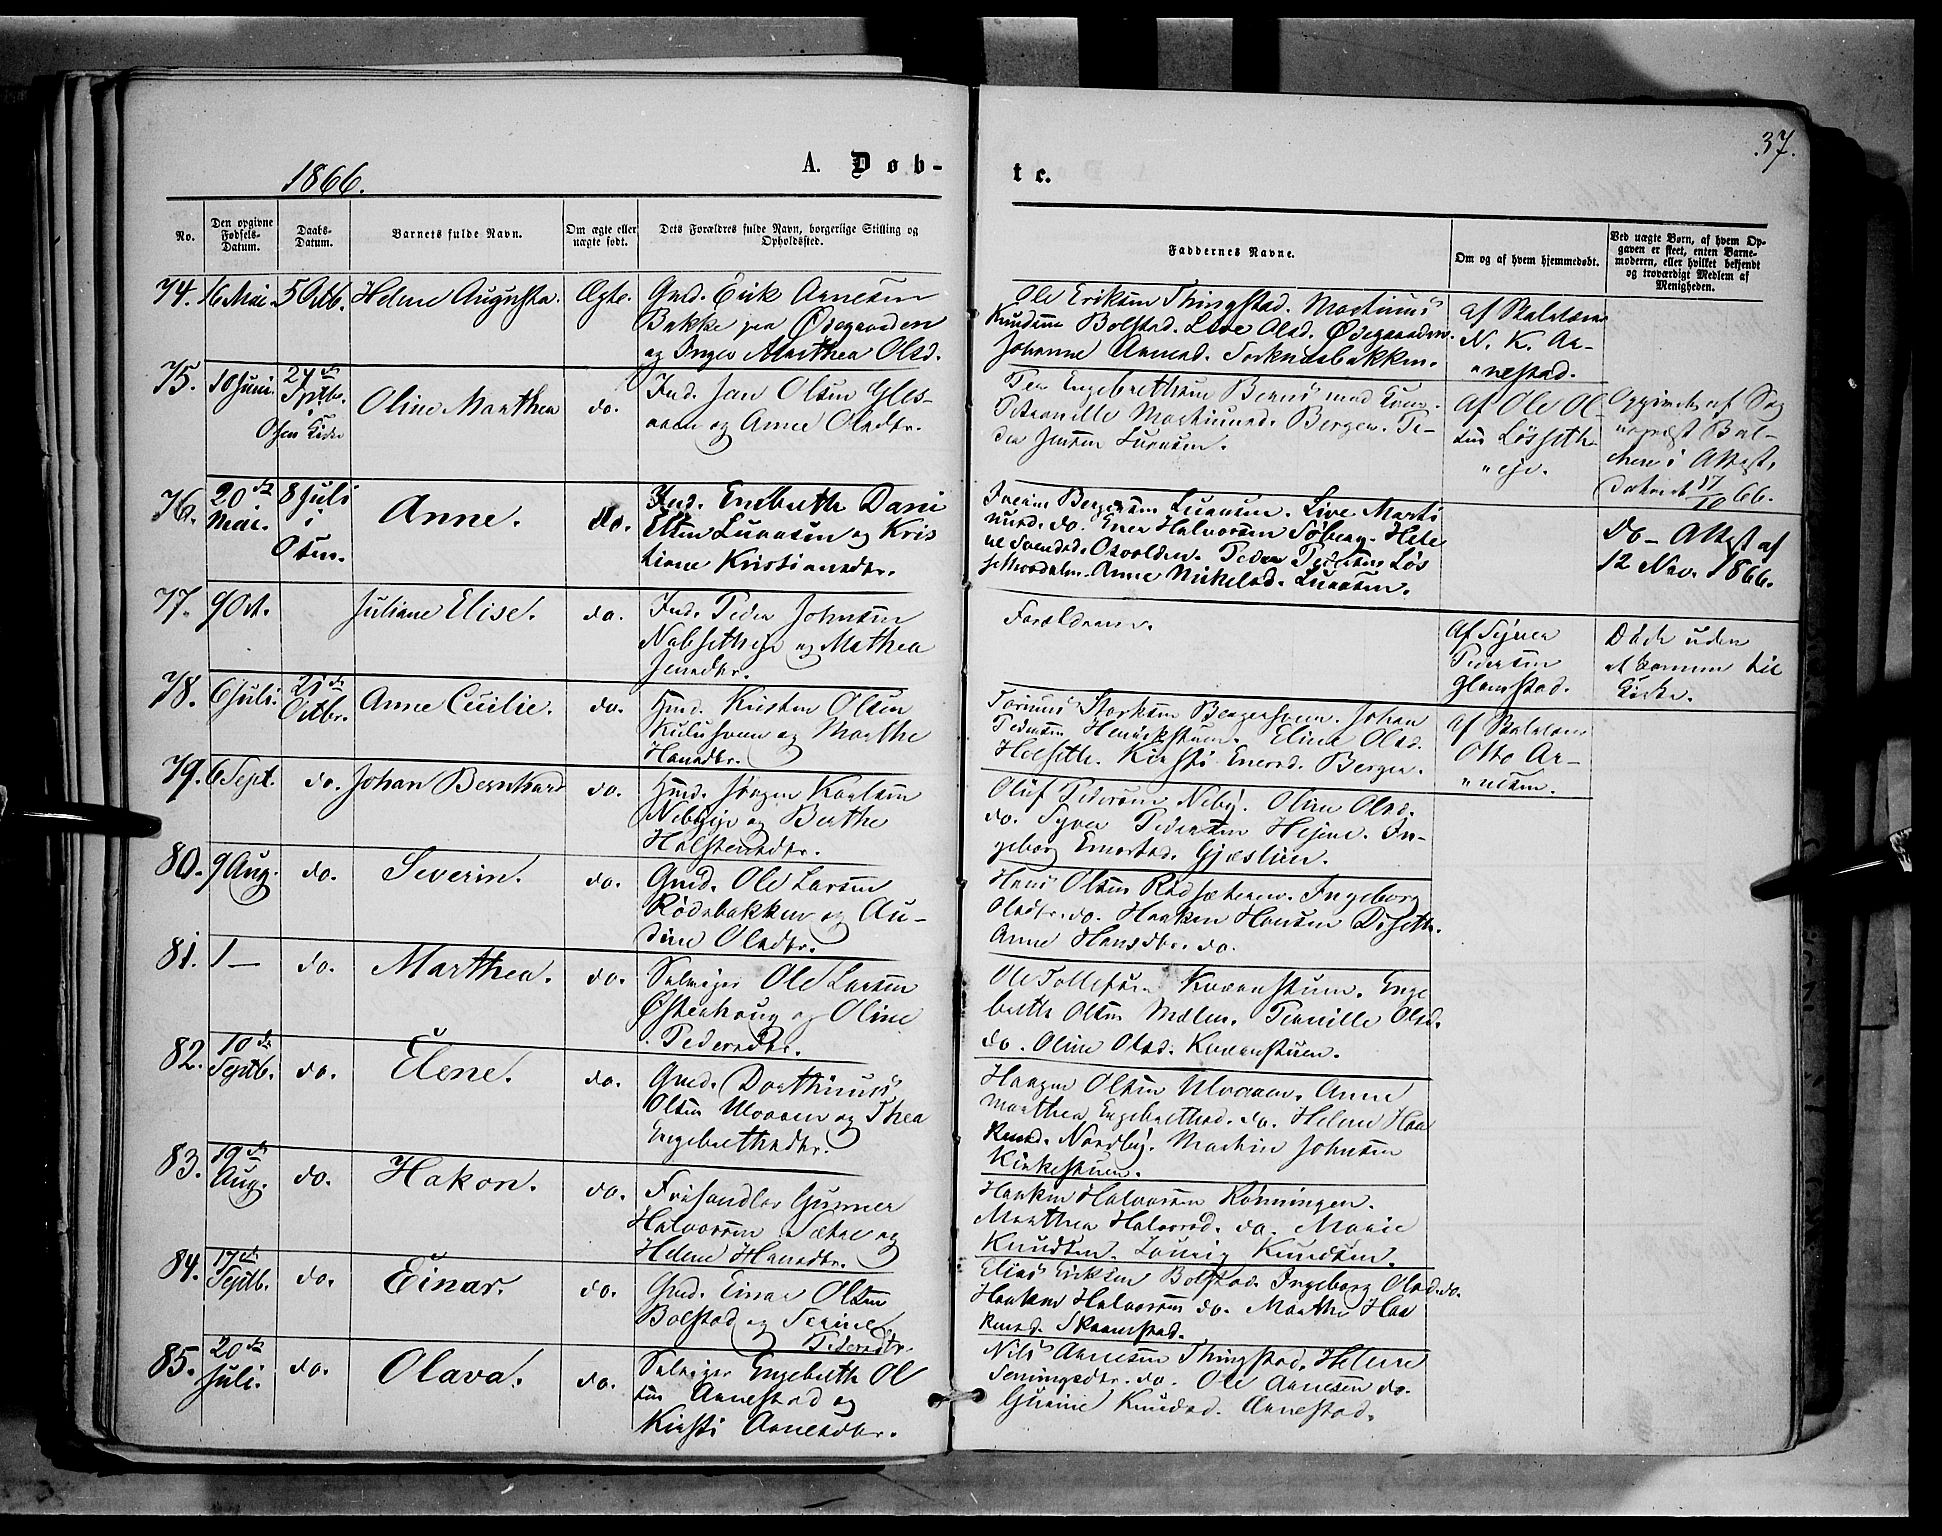 1866.
A. Døb-
te.
37.
No.
Den opgivne
Fødsels-
Datum.
Daabs-
Datum.
Barnets fulde Navn.
Om ægte eller
uægte født.
Dets Forældres fulde Navn, borgerlige Stilling og
Opholdssted.
Faddernes Navne.
Om og af hvem hjemmedøbt.
Ved uægte Børn, af hvem Op-
gaven er skeet, enten Barne-
moderen, eller hvilket bekjendt
og troværdigt Medlem af
Menigheden.
74. 16 Mai. 5 Octb. Helene Augusta. Ægte.
Gmd. Erik Arnesen
Bakke paa Ødegaarden
og Inger Marthea Olsd.
Ole Eriksen Thingstad. Martinus
Knudsen Bolstad. Live Olsd. Ødegaarden.
Johanne Arnesd.
af Skolelærer
N. K. Ar-
nestad.
75. 10 Juni.
Septbr.
i
Osen Kirke
Oline Marthea do.
Ind. Jan Olsen Gles-
aaen og Anne Olsdtr.
Per Engebrethsen Berns med Kone.
Petronille Martinusd. Bergen. Pe-
der Jensen
af Ole Ol-
sen Løsseth-
eje.
Opgivet af Sog
nepræst Bal-
chen i Attest,
66.
76. 20de
Mai.
8 Juli
i
Osen.
Anne. do.
Ind. Embreth Dani
Elsen og Kris
tiane Kristiansdtr.
Live Marti
nusd. do. Ener Halvorsen Søberg. Hele
ne Svendsd. Osvolden. Peder Pedersen Løs
sethmodalen. Anne Mikelsd.
Do - Attest af
12 Nov. 1866.
77. 9 Oct. Juliane Elise. do.
Ind. Peder Johnsen
Nabsetheje og Mathea
Jensdtr.
Forældrene.
af Syver
Pedersen
Glomstad.
Døde uden
at komme til
Kirke.
78. 6 Juli. 21de
Octbr.
Anne Cecilie. do.
Hmd. Kristen Olsen
og Marthe
Hansdtr.
Johan
Pedersen Henrikstuen. Eline Olsd.
Holseth. Kirsti Enersd. Bergen.
af Skolelærer
Otto Ar-
nesen.
79. 6 Sept. do. Johan Bernhard do.
Hmd. Jørgen Karlsen
Nebyeje og Berthe
Halstensdtr.
Oluf Pedersen Neby. Oline Olsd.
do. Syver Pedersen Hejne. In-
geborg
80. 9 Aug. do. Severin. do.
Gmd. Ole Larsen
Rødsbakken og Au-
dine Olsdtr.
Hans Olsen Rødsæteren. Ingeborg
Olsdtr. do. Haaken Hansen Diseth.
Anne Hansdtr. do.
81. 1 - do. Marthea. do.
Selveier Ole Larsen
Østenhaug og Oline
Pedersdtr.
Ole Tollefsen Kværnstuen. Enge
breth Olsen Mælen. Pernille Olsd.
do. Oline Olsd. Kværnstuen.
82. 10de
Septb.
do. Elene. do.
Gmd. Dorthinus
Olsen Ulvaaen og Thea
Engebrethsdtr.
Haagen Olsen Ulvaaen. Anne
Marthea Engebrethsd. do. Helene Haa
kensd. Nordby. Martin Johnsen
Kirkestuen.
83. 19de
Aug.
do. Hakon. do.
Frihandler Gunner
Halvorsen Sætre og
Helene Hansdtr.
Haaken Halvorsen Rønningen.
Marthea Halvorsd. do. Marie
Knudsen. Lauriz Knudsen.
84. 17de
Septb.
do. Einar. do.
Gmd. Einar Olsen
Bolstad og Serine
Pedersdtr.
Elias Eriksen Bolstad. Ingeborg Olsd. do.
Haaken Halvorsen do. Marthe Haa
kensd. Skaanstad.
85. 20de
Juli.
do. Olava. do.
Selveier Engebreth Ol
sen Arnestad og
Kirsti Arnesdtr.
Nils Arnesen Thingstad. Helene
Semingsdtr. do. Ole Arnesen do.
Gurine Knudsd. Arnestad.